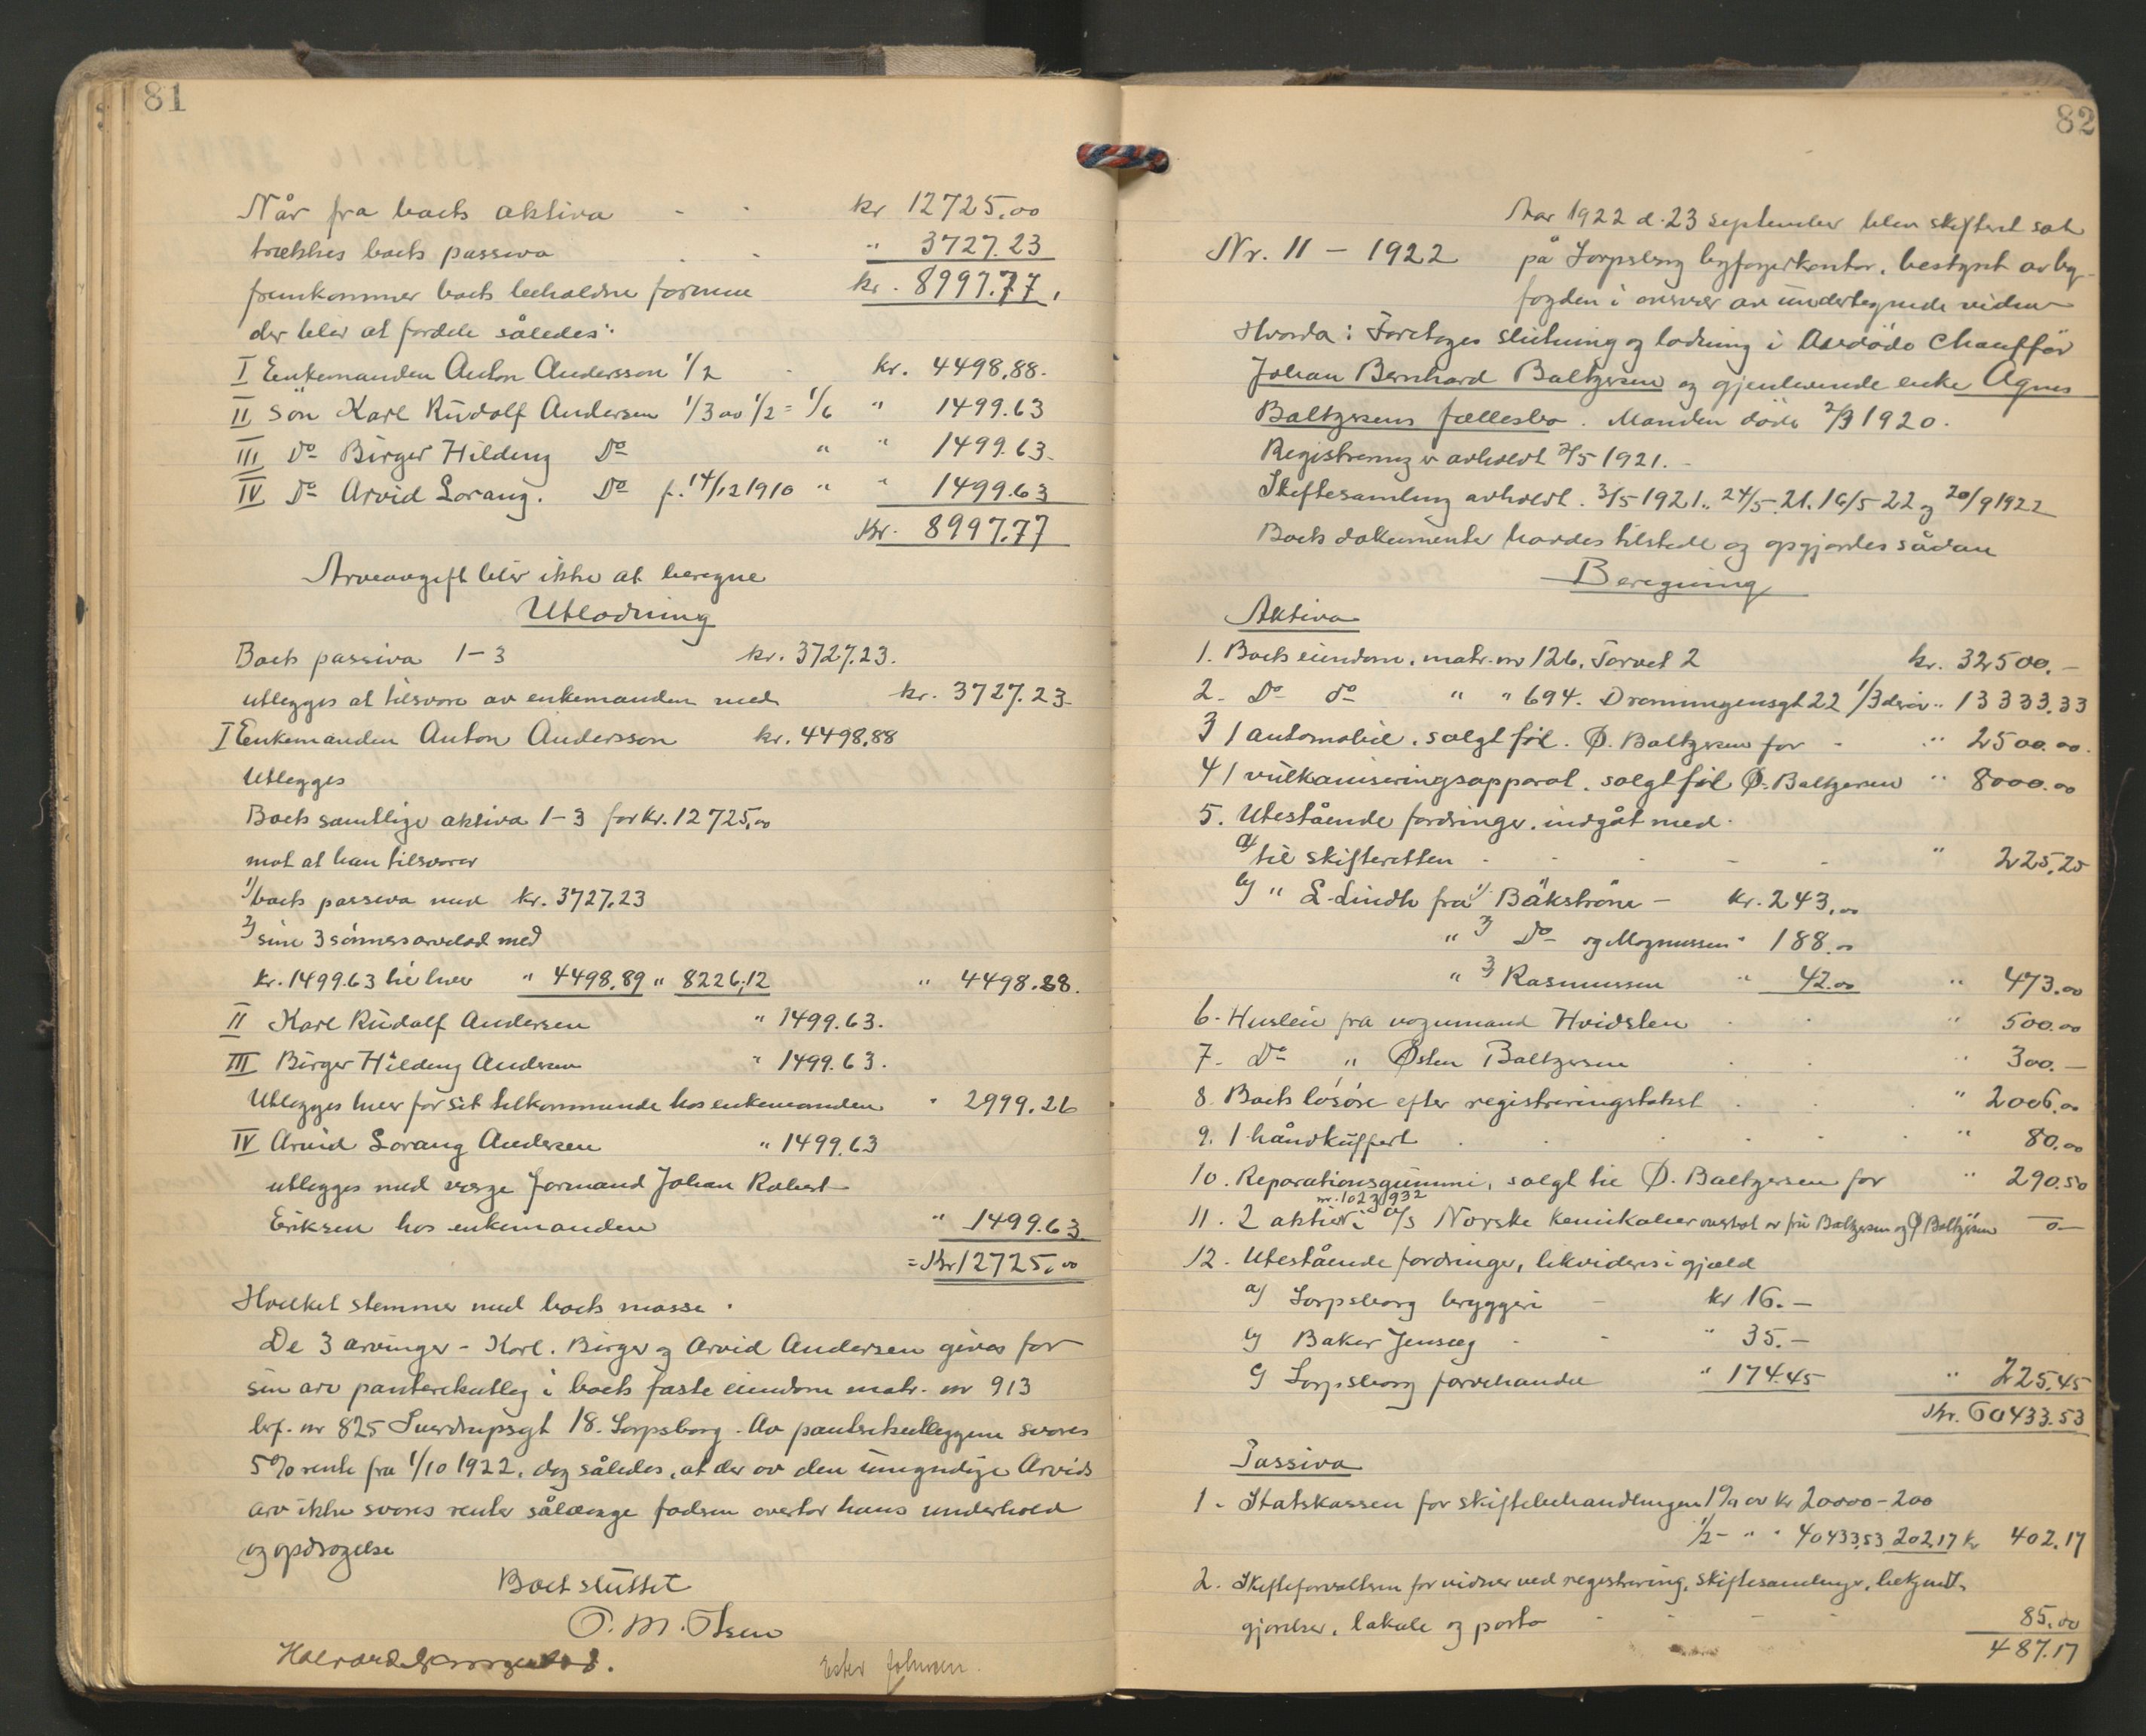 81
Når fra boets aktiva - - kr 12725,00
trækkes boets passiva - - " 3727.23
fremkommer boets beholdne formue kr. 8997.77,
der blir at fordele således:
I Enkemanden Anton Andersson 1/2 - kr. 4498,88.
II Søn Karl Rudolf Andersen 1/3 av 1/2 = 1/6 " 1499.63
III Do Birger Hilding Do " " 1499.63.
IV Do Arvid Lorang. Do f. 14/12 1910 " " 1499.63
Kr. 8997,77
Arveavgift blir ikke at beregne
Utlodning
Boets passiva 1-3 kr. 3727.23.
utlegges at tilsvare av enkemanden med kr. 3727.23
I Enkemanden Anton Andersson kr. 4498,88
Utlegges
Boets samtlige aktiva 1-3 for kr. 12725,00
mot at han tilsvarer
1/ boets passiva med kr. 3727,23
2/ sine 3 sønners arvelod med
kr. 1499.63 til hver " 4498,89 " 8226,12 " 4498.88.
II Karl Rudolf Andersen " 1499.63.
III Birger Hilding Andersen " 1499.63.
Utlegges hver for sit tilkommende hos enkemanden " 2999.26
IV Arvid Lorang Andersen " 1499,63
utlegges med verge formand Johan Robert
Eriksen hos enkemanden " 1499.63
= Kr 12725,00
Hvilket stemmer med boets masse.
De 3 arvinger - Karl. Birger og Arvid Andersen gives for
sin arv panteretutleg i boets faste eiendom matr. nr 913
brf. nr 825 Sverdrupsgt 18. Sarpsborg. Av panteretutleggene svares
5% rente fra 1/10 1922, dog således, at der av den umyndige Arvids
arv ikke svares renter sålænge faderen overtar hans underhold
og opdragelse
Boet sluttet
O. M. Olsen
Ester Johnsen.
82
Aar 1922 d. 23 september blev skifteret sat
Nr. 11 - 1922 på Sarpsborg byfogerkontor, bestyret av by-
fogden i overvær av undertegnede vidner
Hvorda: Foretoges slutning og lodning i Avdøde Chauffør
Johan Bernhard Baltzersen og gjenlevende enke Agnes
Baltzersens fællesbo. Manden døde 2/9 1920.
Registrering er avholdt 3/5 1921. -
Skiftesamling avholdt. 3/5 1921., 24/5.21. 16/5-22 og 20/9 1922
Boets dokumenter havdes tilstede og opgjordes sådan
Beregning
Aktiva
1. Boets eiendom. matr. nr 126. Torvet 2 kr. 32500.-
2. Do do " " 694. Dronningensgt 22 1/3 derav " 13333.33
3 1 automobil. solgt til. Ø. Baltzersen for - " 2500.00.
4 1 vulkaniseringsapparat. solgt til Ø. Baltzersen " 8000.00
5. Utestående fordringer. indgåt med.
a/ til skifteretten - - - - - " 225,25
b/ " L. Lindh fra 1/ Bäkström - kr. 243,00
" 2/ Do og Magnussen " 188.00
" 3/ Rasmussen " 42.00 " 473.00
6. Husleie fra vognmand Hvidsten " 500.00
7. Do " Østen Baltzersen " 300.-
8. Boets løsøre efter registreringstakst " 2006.00
9. 1 håndkuffert " 80.00
10. Reparationsgummi, solgt til Ø. Baltzersen for " 290.50
nr. 1023 932
11. 2 aktier i A/S Norske kemikalier overtat av fru Baltzersen og Ø Baltzersen -0-
12. Utestående fordringer, likvideres i gjæld
a/ Sarpsborg bryggeri - kr 16.-
b/ Baker Jenseg - - " 35.-
c/ Sarpsborg farvehandel " 174.45 " 225.45
Kr. 60433.53
Passiva
1. Statskassen for skiftebehandlingen 1% av kr 20000 - 200
1/2 - " " 40433.53 202,17 kr 402.17
2. Skifteforvalteren for vidner ved registrering, skiftesamlinger, bekjendt-
gjørelser, lokale og porto - - - - 85.00
487.17